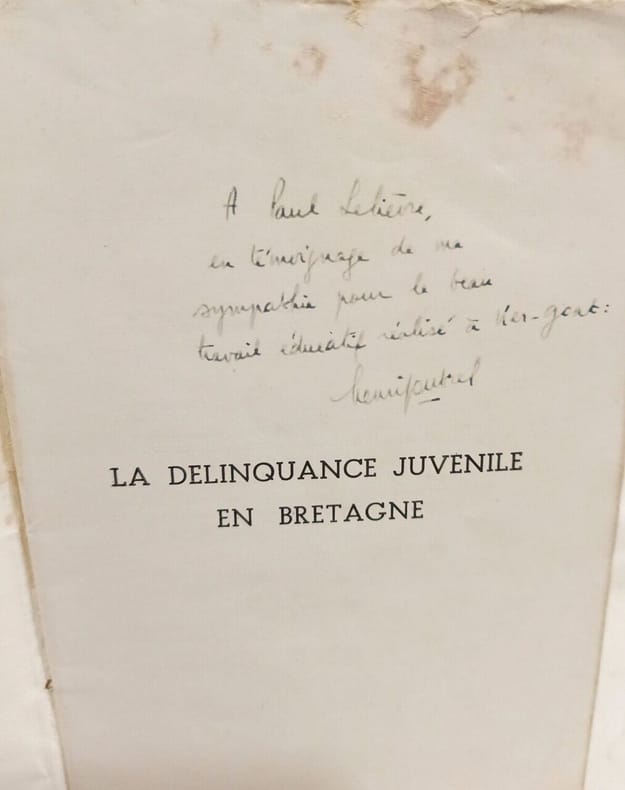 A Paul Lelièvre,
en témoignage de ma
sympathie pour le beau
travail éducatif réalisé à Ker-goat:
LA DELINQUANCE JUVENILE
EN BRETAGNE